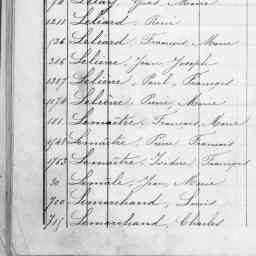 Leliard, René
536 Leliard, François Marie
Lelièvre, Jean Joseph
Lelièvre, Paul, François
Lelièvre, Pierre, Marie
Lemaître, François Marie
Lemaître, Pierre François
1763 Lemaître, Isidore François
30 Lemâle, Jean, Marie
700 Lemarchand, Louis
715 Lemarchand, Charles